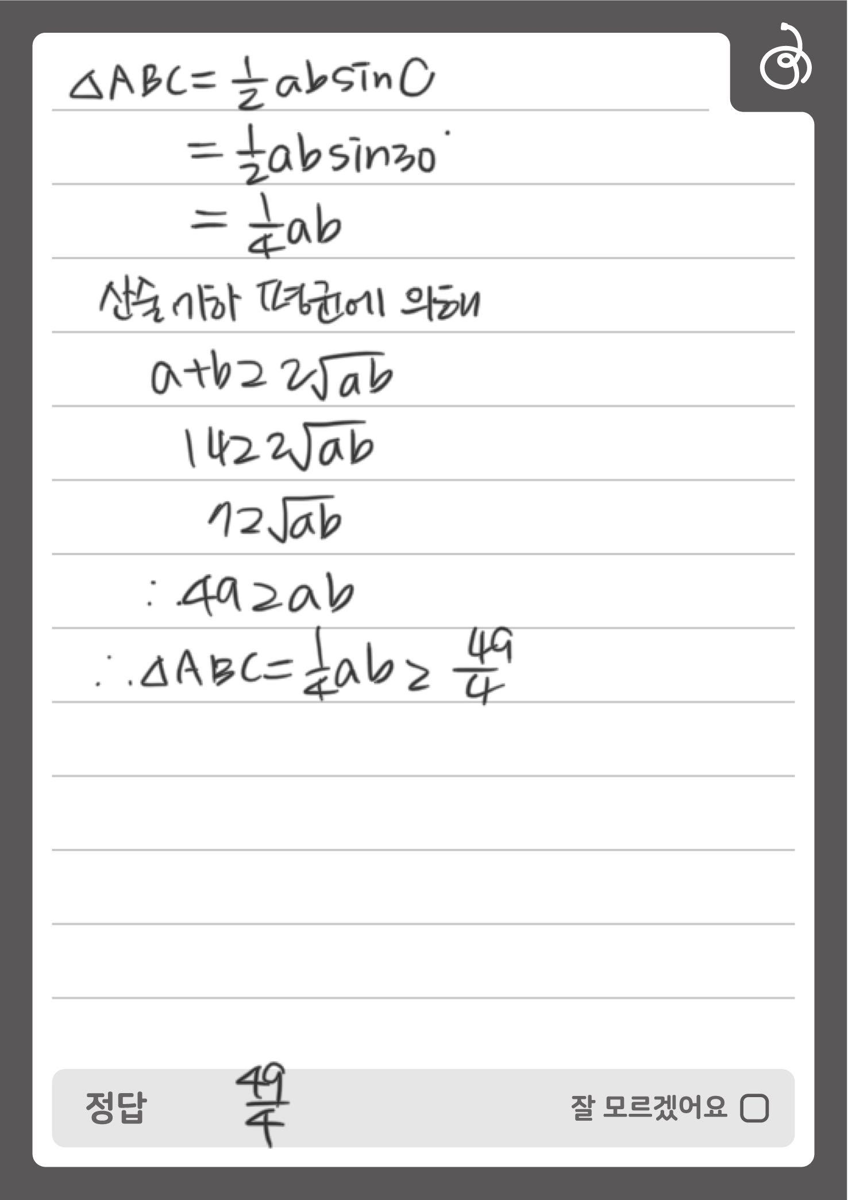 △ABC = 1/2 ab sin C
= 1/2 ab sin30°
= 1/4 ab
산술기하 평균에 의해
a+b ≥ 2√ab
14 ≥ 2√ab
7 ≥ √ab
∴ 49 ≥ ab
∴ △ABC = 1/4 ab ≥ 49/4
정답 49/4 잘 모르겠어요